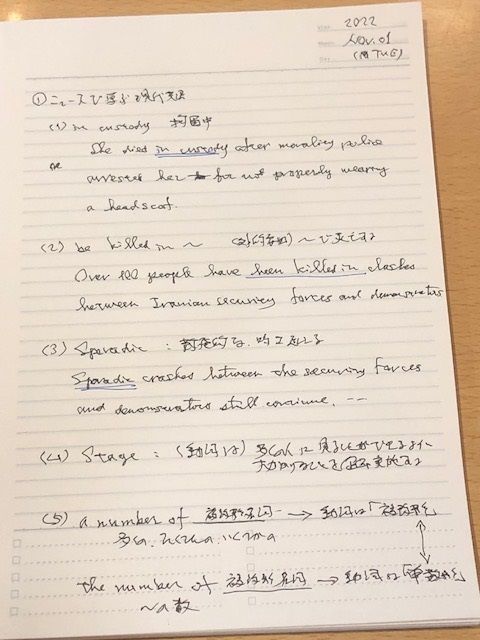 2022
Nov. 01
(TUE)
① ニュースで学ぶ現代英語
(1) in custody 拘留中
She died in custody after morality police
arrested her for not properly wearing
a headscaf.
(2) be killed in ~ ~で死亡する
Over 100 people have been killed in clashes
between Iranian security forces and demonstrators
(3) Sporadic : 散発的な、
Sporadic crashes between the security forces
and demonstrators still continue. --
(4) Stage : (動詞は) 多くの人に見ることができるように
(5) a number of 複数形名詞 → 動詞は「複数形」
多くの、
the number of 複数形名詞 → 動詞は「単数形」
~の数